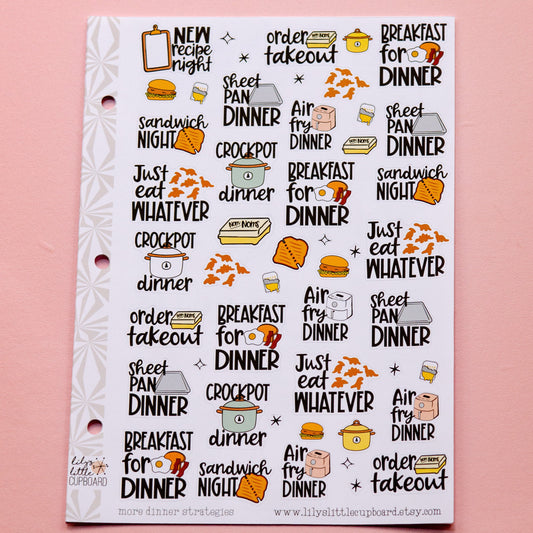 NEW
recipe
night
order
takeout
BREAKFAST
for
DINNER
Sheet
PAN
DINNER
Air
fry
DINNER
Sheet
PAN
DINNER
sandwich
NIGHT
CROCKPOT
dinner
BREAKFAST
for
DINNER
sandwich
NIGHT
Just
eat
WHATEVER
Nom Noms
Just
eat
WHATEVER
CROCKPOT
dinner
order
takeout
BREAKFAST
for
DINNER
Air
fry
DINNER
Sheet
PAN
DINNER
Sheet
PAN
DINNER
CROCKPOT
dinner
Just
eat
WHATEVER
Air
fry
DINNER
BREAKFAST
for
DINNER
sandwich
NIGHT
Air
fry
DINNER
order
takeout
lily's
little
CUPBOARD
more dinner strategies
www.lilyslittlecupboard.etsy.com